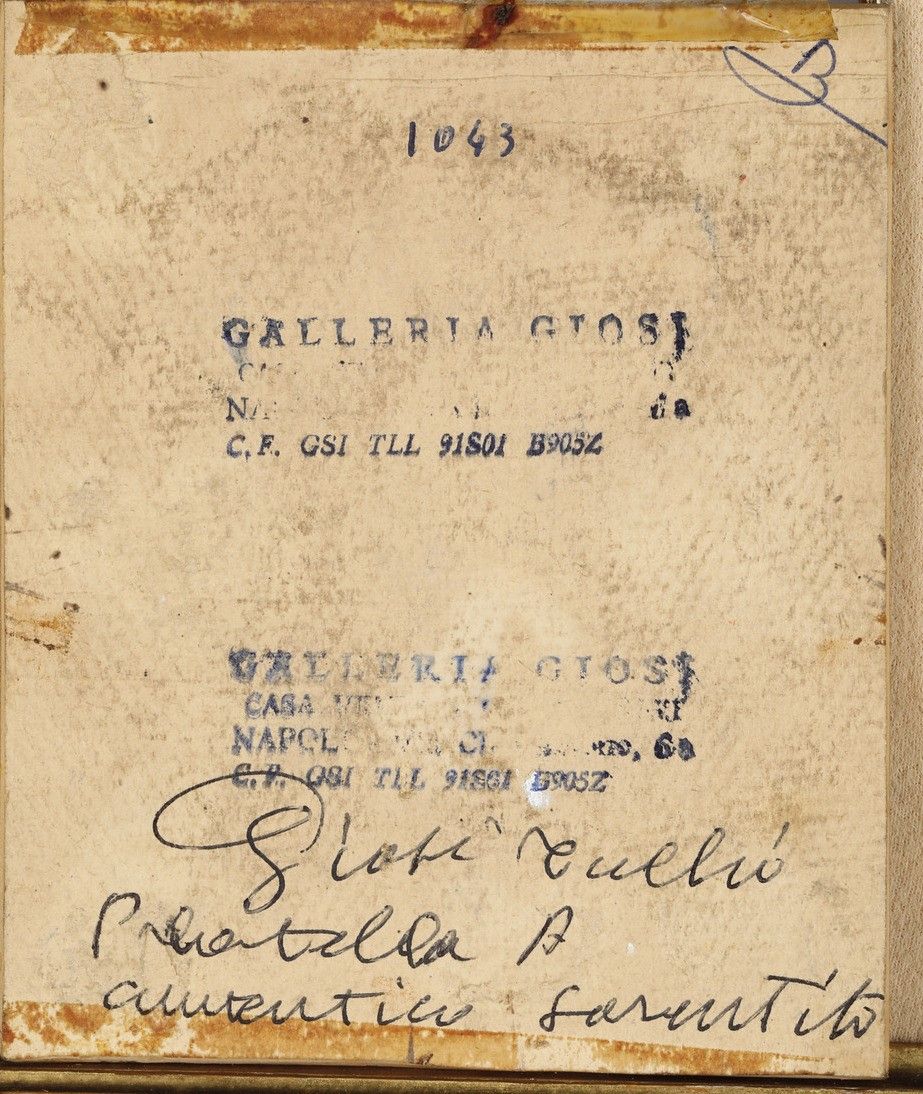 1043
GALLERIA GIOSI
6a
C.F. GSI TLL 91S01 B905Z
GALLERIA GIOSI
CASA
NAPOLI 6a
C.F. GSI TLL 91S01 B905Z
Giosi Tullio
Pratella A
autentico garantito